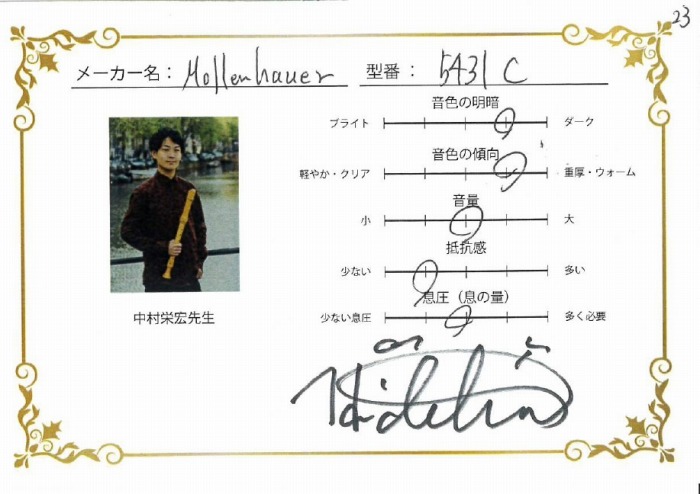 23
メーカー名： Mollenhauer 型番： 5431 C
音色の明暗
ブライト ダーク
音色の傾向
軽やか・クリア 重厚・ウォーム
音量
小 大
抵抗感
少ない 多い
息圧（息の量）
少ない息圧 多く必要
中村栄宏先生